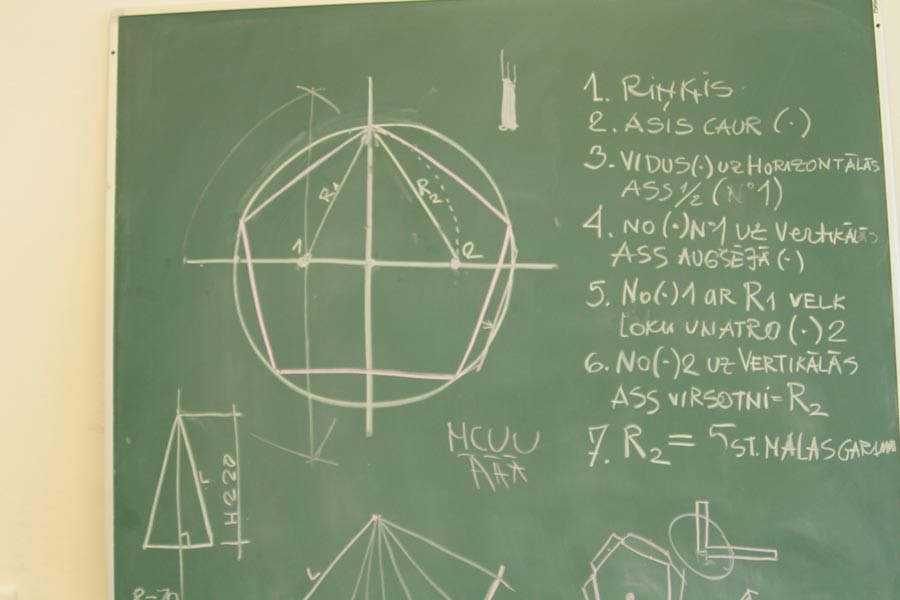 1. RIŅĶIS
2. ASIS CAUR (·)
3. VIDUS(·) UZ HORIZONTĀLĀS
ASS 1/2 (N°1)
4. NO (·)N°1 UZ VERTIKĀLĀS
ASS AUGŠĒJĀ (·)
5. NO(·)1 AR R1 VELK
LOKU UN ATRO (·)2
6. NO(·)2 UZ VERTIKĀLĀS
ASS VIRSOTNI=R2
7. R2 = 5ST. MALAS GARUM
R1
R2
1
2
MCUU
ĀĀĀ
r
H220
R-70
L